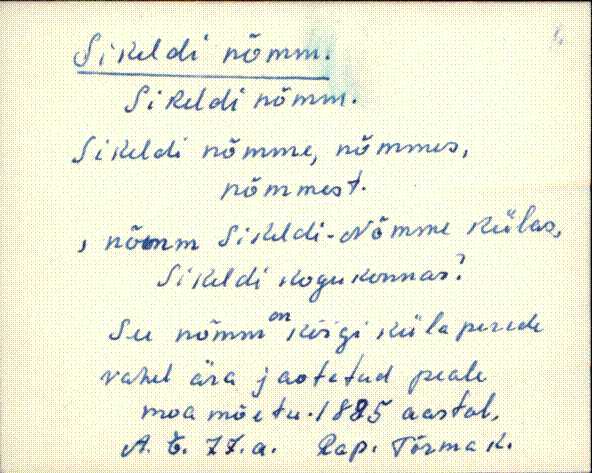 Sikeldi nõmm.
Sikeldi nõmm.
Sikeldi nõmme, nõmmes,
nõmmest.
, nõmm Sikeldi-Nõmme külas,
Sikeldi kogukonnas?
See nõmm on kõigi küla perede
vahel ära jaotatud peale
moa mõetu. 1885 aastal.
A. E. 77. a. Rap. Tõrma k.